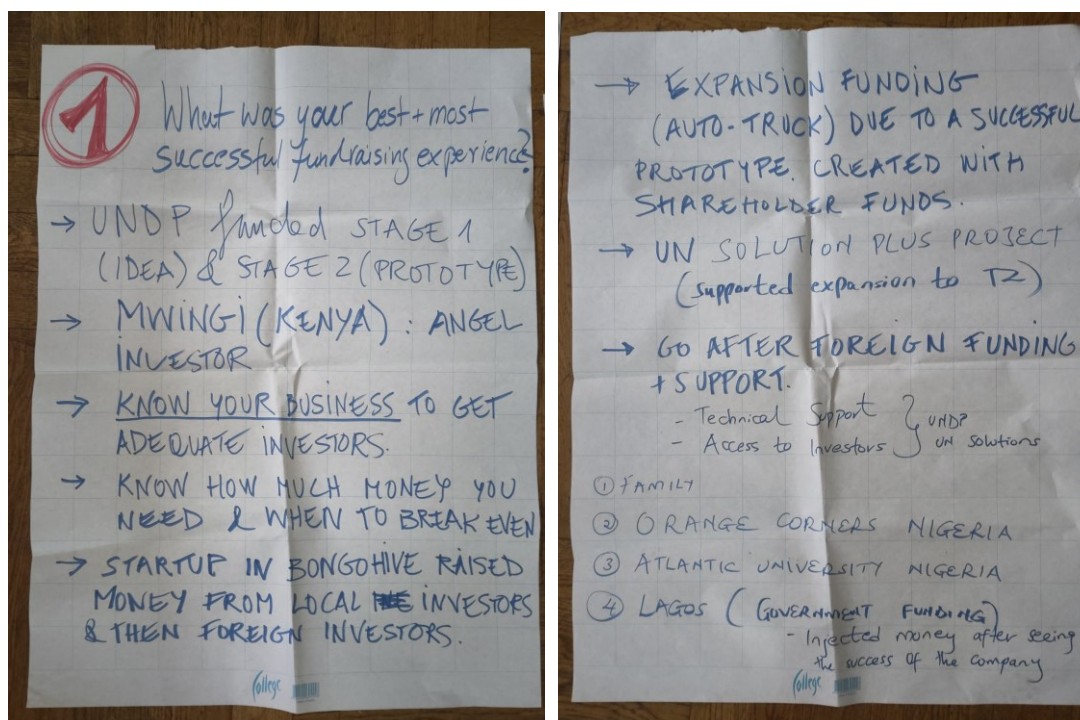 1
What was your best + most
successful fundraising experience?
→ UNDP funded STAGE 1
(IDEA) & STAGE 2 (PROTOTYPE)
→ MWINGI (KENYA) : ANGEL
INVESTOR
→ KNOW YOUR BUSINESS TO GET
ADEQUATE INVESTORS.
→ KNOW HOW MUCH MONEY YOU
NEED & WHEN TO BREAK EVEN
→ STARTUP IN BONGOHIVE RAISED
MONEY FROM LOCAL INVESTORS
& THEN FOREIGN INVESTORS.
College
→ EXPANSION FUNDING
(AUTO-TRUCK) DUE TO A SUCCESSFUL
PROTOTYPE. CREATED WITH
SHAREHOLDER FUNDS.
→ UN SOLUTION PLUS PROJECT
(supported expansion to TZ)
→ GO AFTER FOREIGN FUNDING
+ SUPPORT.
- Technical Support } UNDP
- Access to Investors } UN Solutions
① FAMILY
② ORANGE CORNERS NIGERIA
③ ATLANTIC UNIVERSITY NIGERIA
④ LAGOS (GOVERNMENT FUNDING)
- Injected money after seeing
the success of the company
College